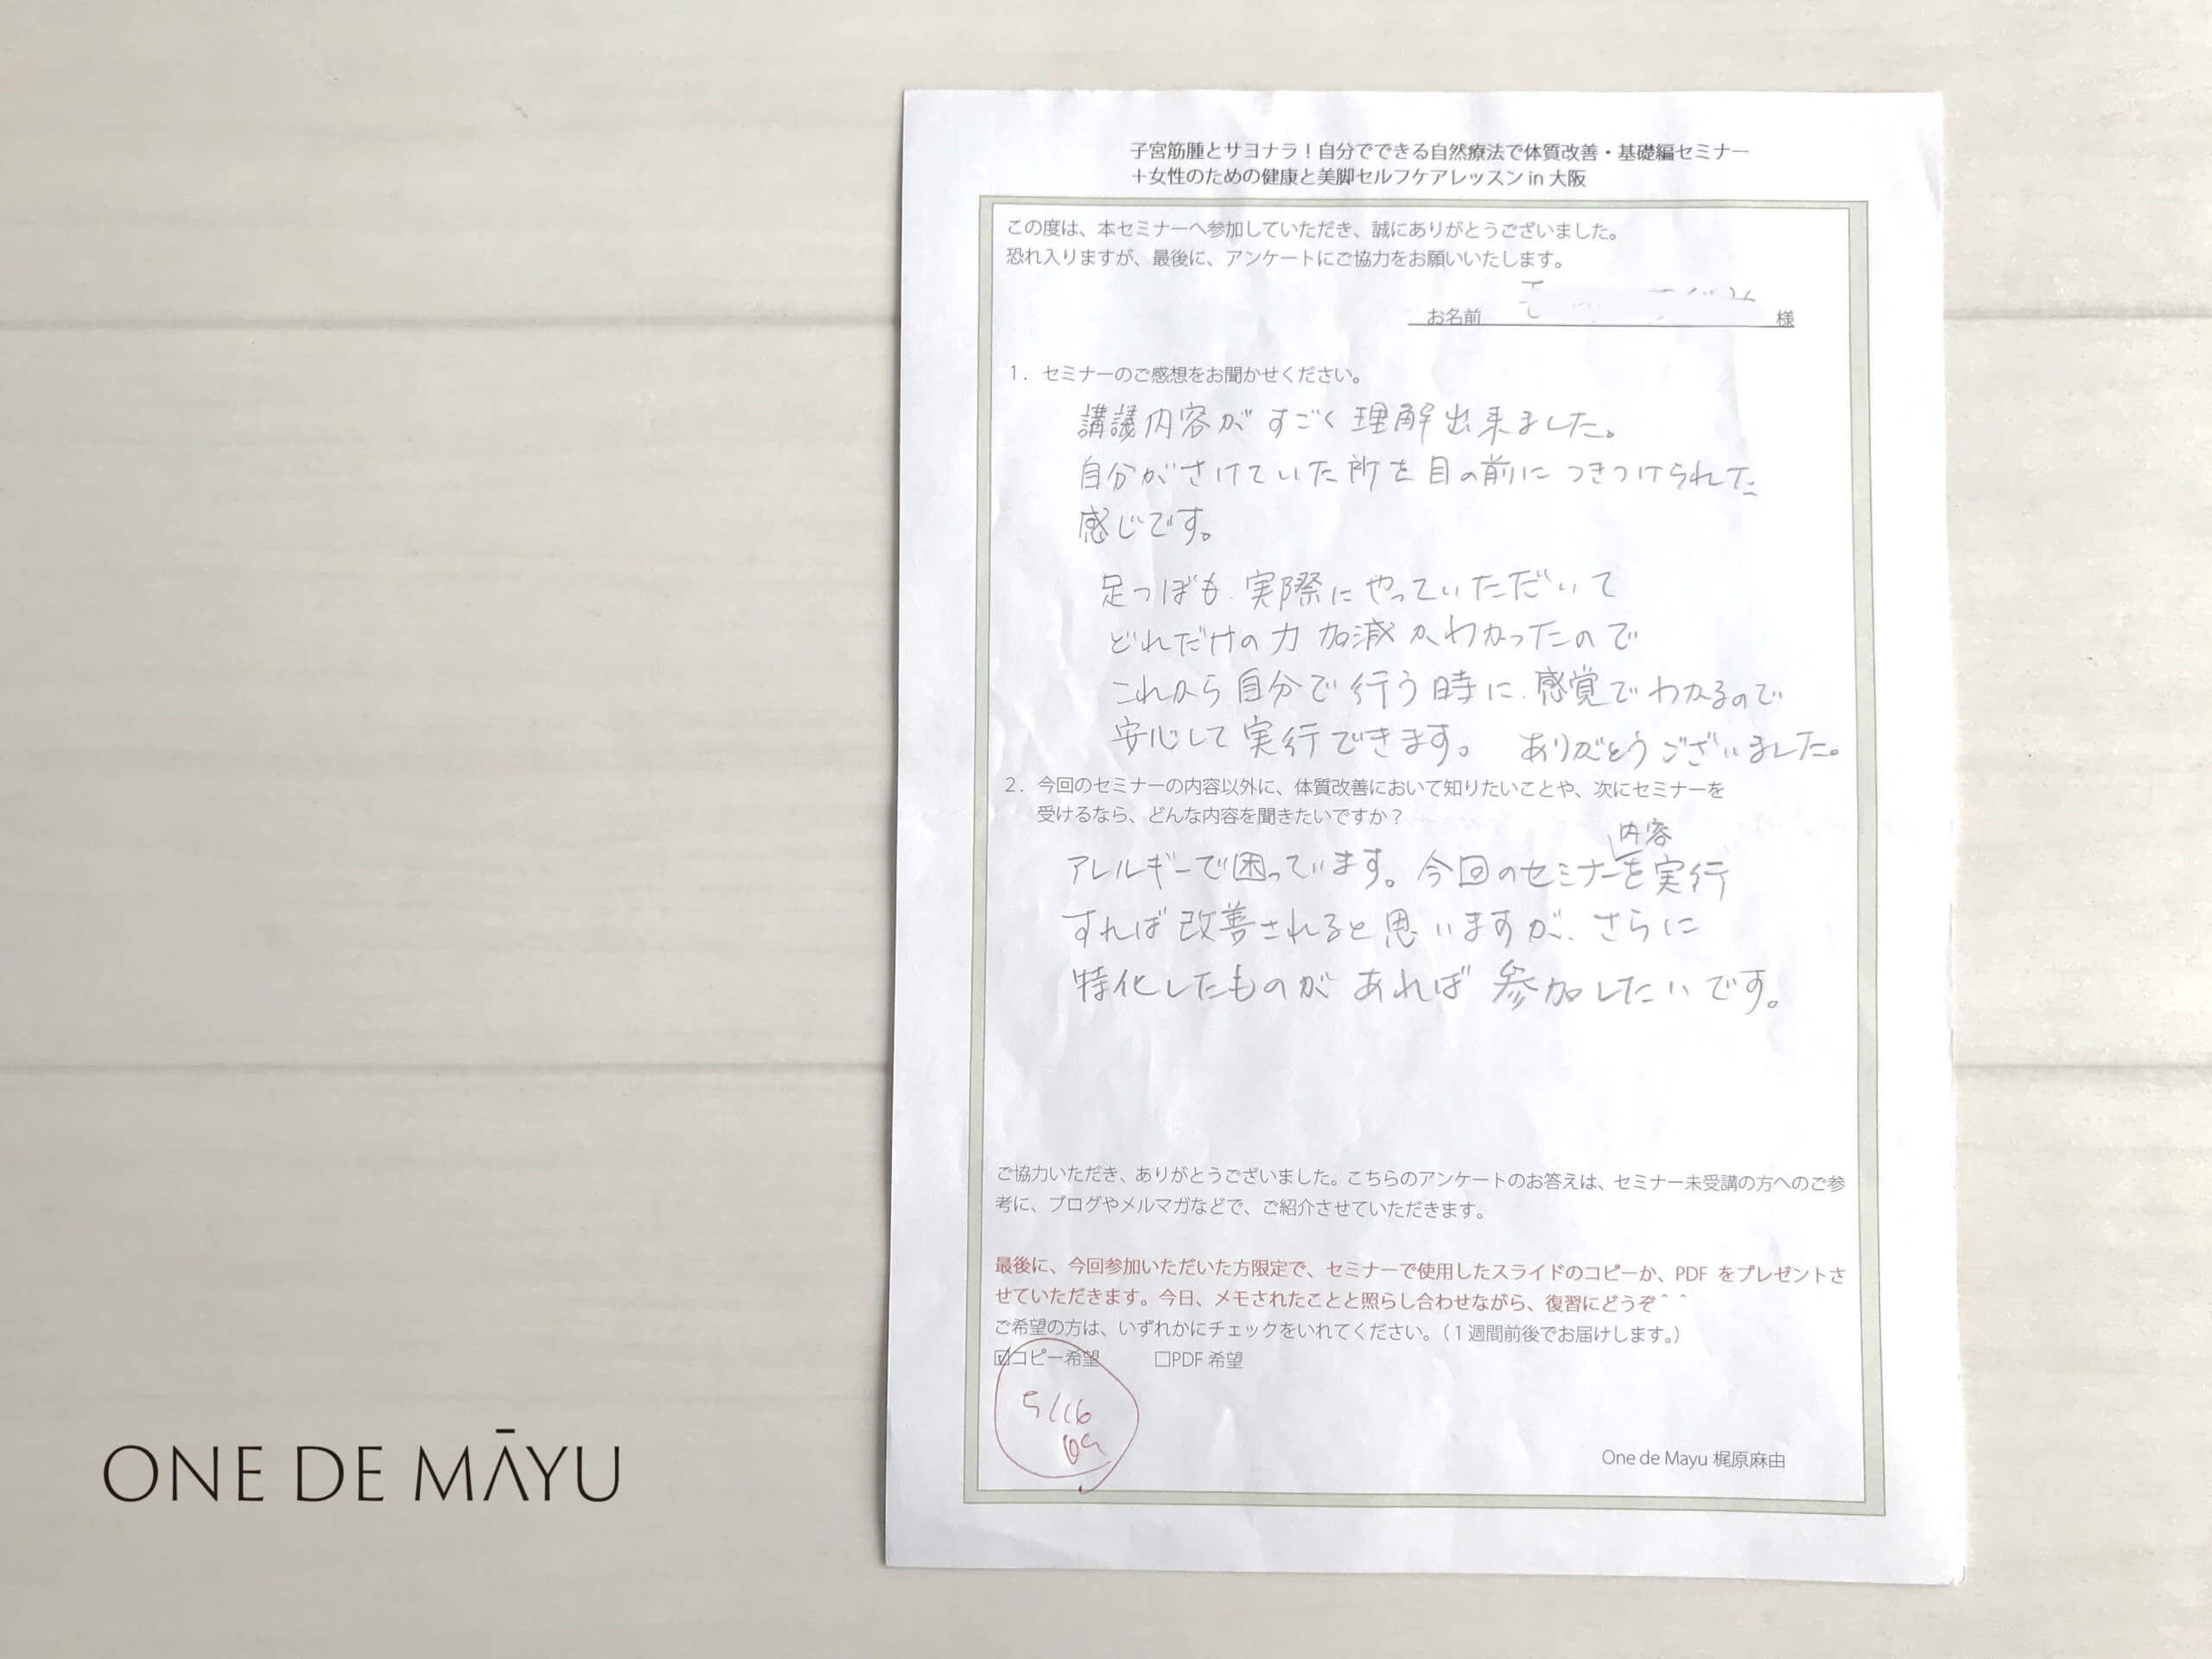 子宮筋腫とサヨナラ！自分でできる自然療法で体質改善・基礎編セミナー
＋女性のための健康と美脚セルフケアレッスン in 大阪
この度は、本セミナーへ参加していただき、誠にありがとうございました。
恐れ入りますが、最後に、アンケートにご協力をお願いいたします。
お名前 様
1．セミナーのご感想をお聞かせください。
講議内容がすごく理解出来ました。
自分がさけていた所を目の前につきつけられた
感じです。
足つぼも実際にやっていただいて
どれだけの力加減かわかったので
これから自分で行う時に、感覚でわかるので
安心して実行できます。 ありがとうございました。
2．今回のセミナーの内容以外に、体質改善において知りたいことや、次にセミナーを
受けるなら、どんな内容を聞きたいですか？
内容
アレルギーで困っています。今回のセミナーを実行
すれば改善されると思いますが、さらに
特化したものがあれば参加したいです。
ご協力いただき、ありがとうございました。こちらのアンケートのお答えは、セミナー未受講の方へのご参
考に、ブログやメルマガなどで、ご紹介させていただきます。
最後に、今回参加いただいた方限定で、セミナーで使用したスライドのコピーか、PDF をプレゼントさ
せていただきます。今日、メモされたことと照らし合わせながら、復習にどうぞ＾＾
ご希望の方は、いずれかにチェックをいれてください。（1 週間前後でお届けします。）
☑コピー希望 □PDF 希望
5/16
One de Mayu 梶原麻由
ONE DE MĀYU